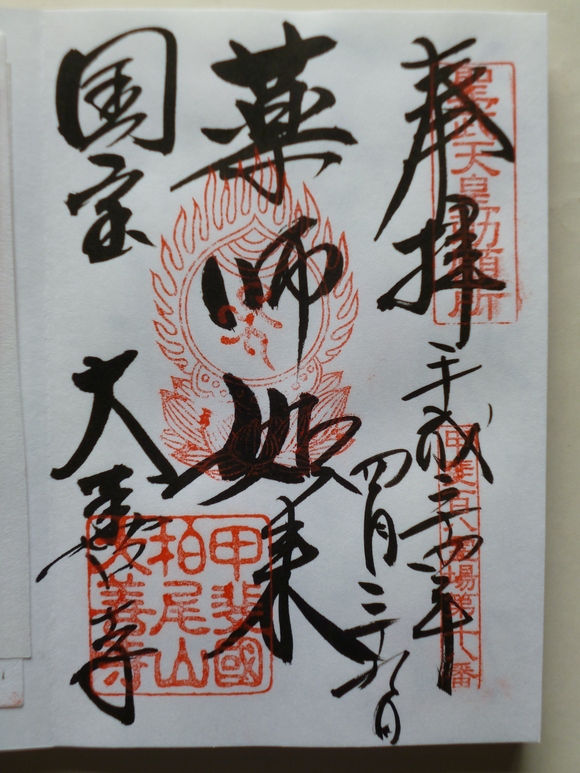 奉拝
聖武天皇勅願所
平成二十四年
四月二十九日
甲斐百八霊場第十八番
薬師如来
国宝
大善寺
甲斐國
柏尾山
大善寺